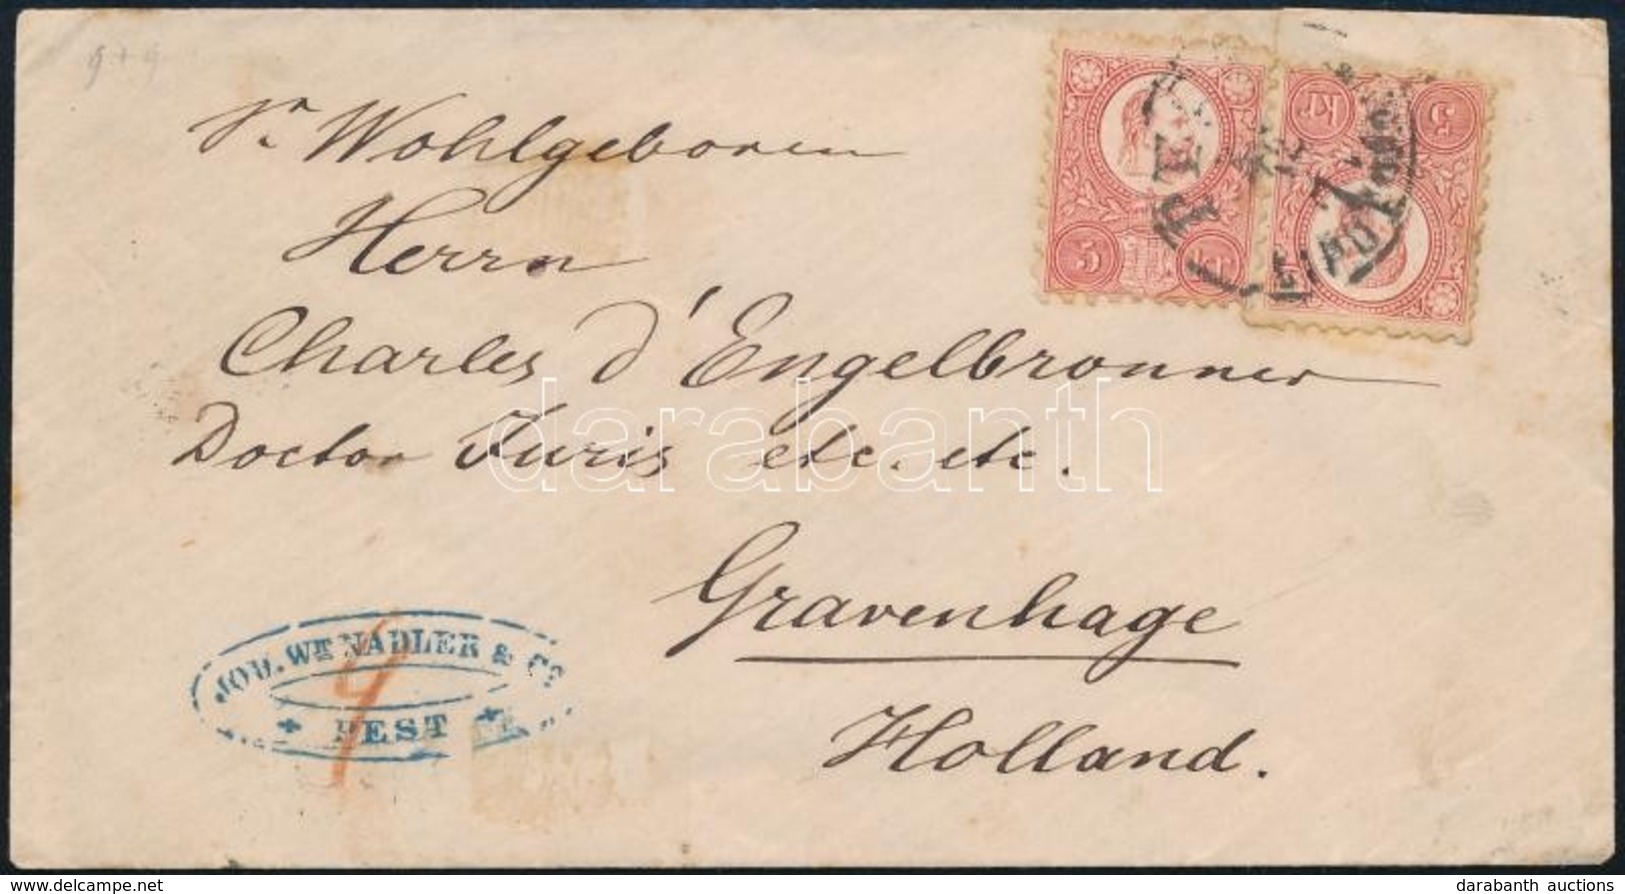 9+9
Sr Wohlgeboren
Herrn
Charles d'Engelbronner
Doctor Juris etc. etc.
Gravenhage
Holland.
JOH. Wm NADLER & Co
PEST
5
kr 5
PEST
darabanth
delcampe.net
darabanth auctions